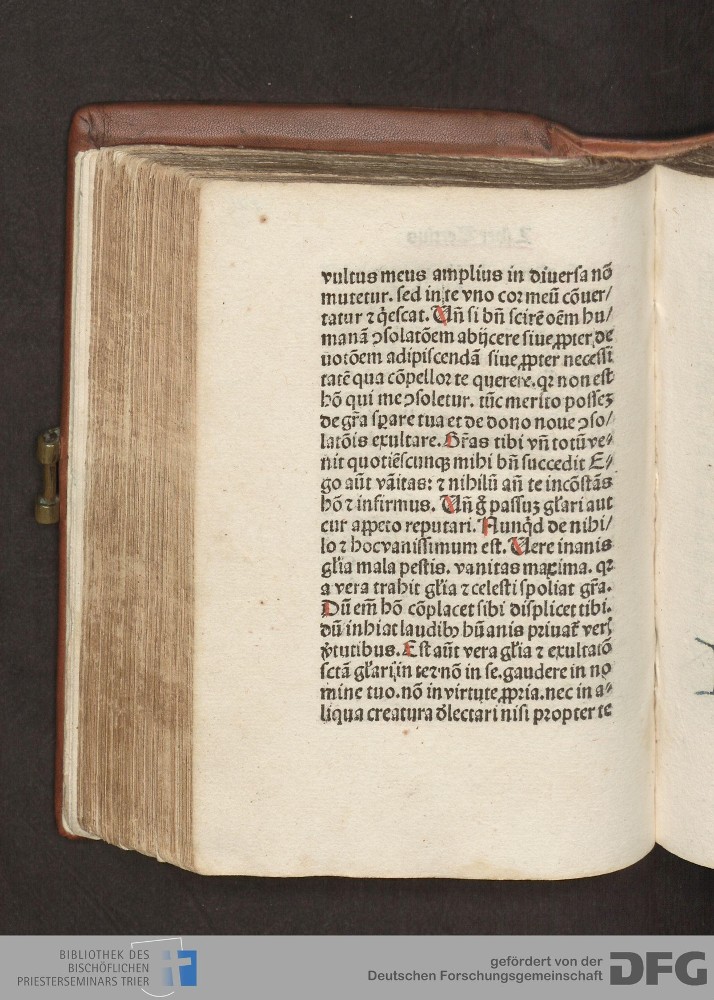 vultus meus amplius in diuersa nō
mutetur. sed in te vno cor meū cōuer/
tatur ⁊ q̇escat. Vn̄ si bn̄ scirē oēm hu/
manā ꝯsolatōem abijcere siue ꝓpter de
uotōem adipiscendā siue ꝓpter necessi
tatē qua cōpellor te querere. qꝛ non est
hō qui me ꝯsoletur. tūc merito possez
de gr̄a sꝑare tua et de dono noue ꝯso/
latōis exultare. Gr̄as tibi vn̄ totū ve⸗
nit quotiēscunqꝫ mihi bn̄ succedit E⸗
go aūt vāitas: ⁊ nihilū an̄ te incōstās
hō ⁊ infirmus. Vn̄ g̊ possuꝫ gl̄ari aut
cur appeto reputari. Nunqd̄ de nihi/
lo ⁊ hoc vanissimum est. Vere inanis
gl̄ia mala pestis. vanitas maxima. qꝛ
a vera trahit gl̄ia ⁊ celesti spoliat gr̄a.
Dū em̄ hō cōplacet sibi displicet tibi.
dū inhiat laudibꝫ hūanis priuat̄ veꝝ
v̓tutibus. Est aūt vera gl̄ia ⁊ exultatō
sctā gl̄ari in te ⁊ nō in se. gaudere in no
mine tuo. nō in virtute ꝓpria. nec in a⸗
liqua creatura d̓lectari nisi propter te
BIBLIOTHEK DES
BISCHÖFLICHEN
PRIESTERSEMINARS TRIER
gefördert von der
Deutschen Forschungsgemeinschaft
DFG